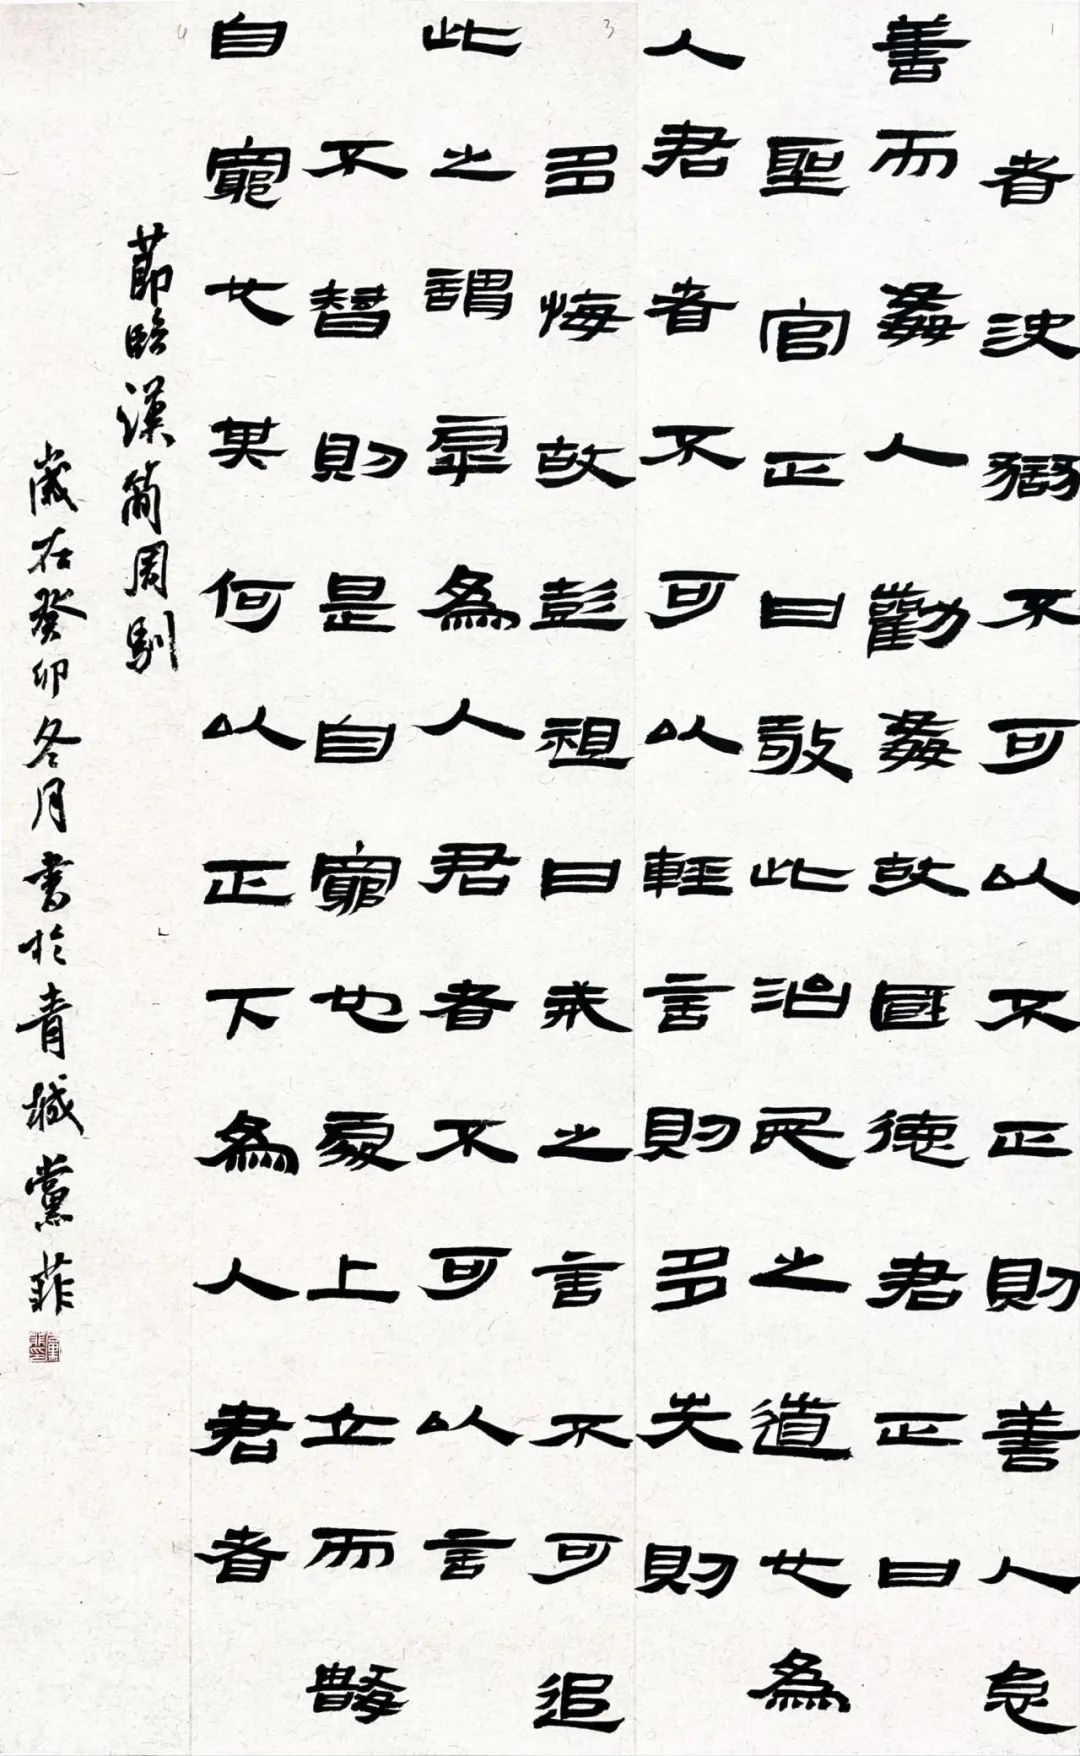 者決獄不可以不正則善人怠
善而姦人勸姦故國德君正曰
聖官正曰敬此治民之道也為
人君者不可以輕言則多失則
多悔故彭祖曰戒之言不可追
此之謂辠為人君者不可以言
不替則是自窮也處上立而
自窮也其何以正下為人君者
節臨漢簡周馴
歲在癸卯冬月書於青城黨菲